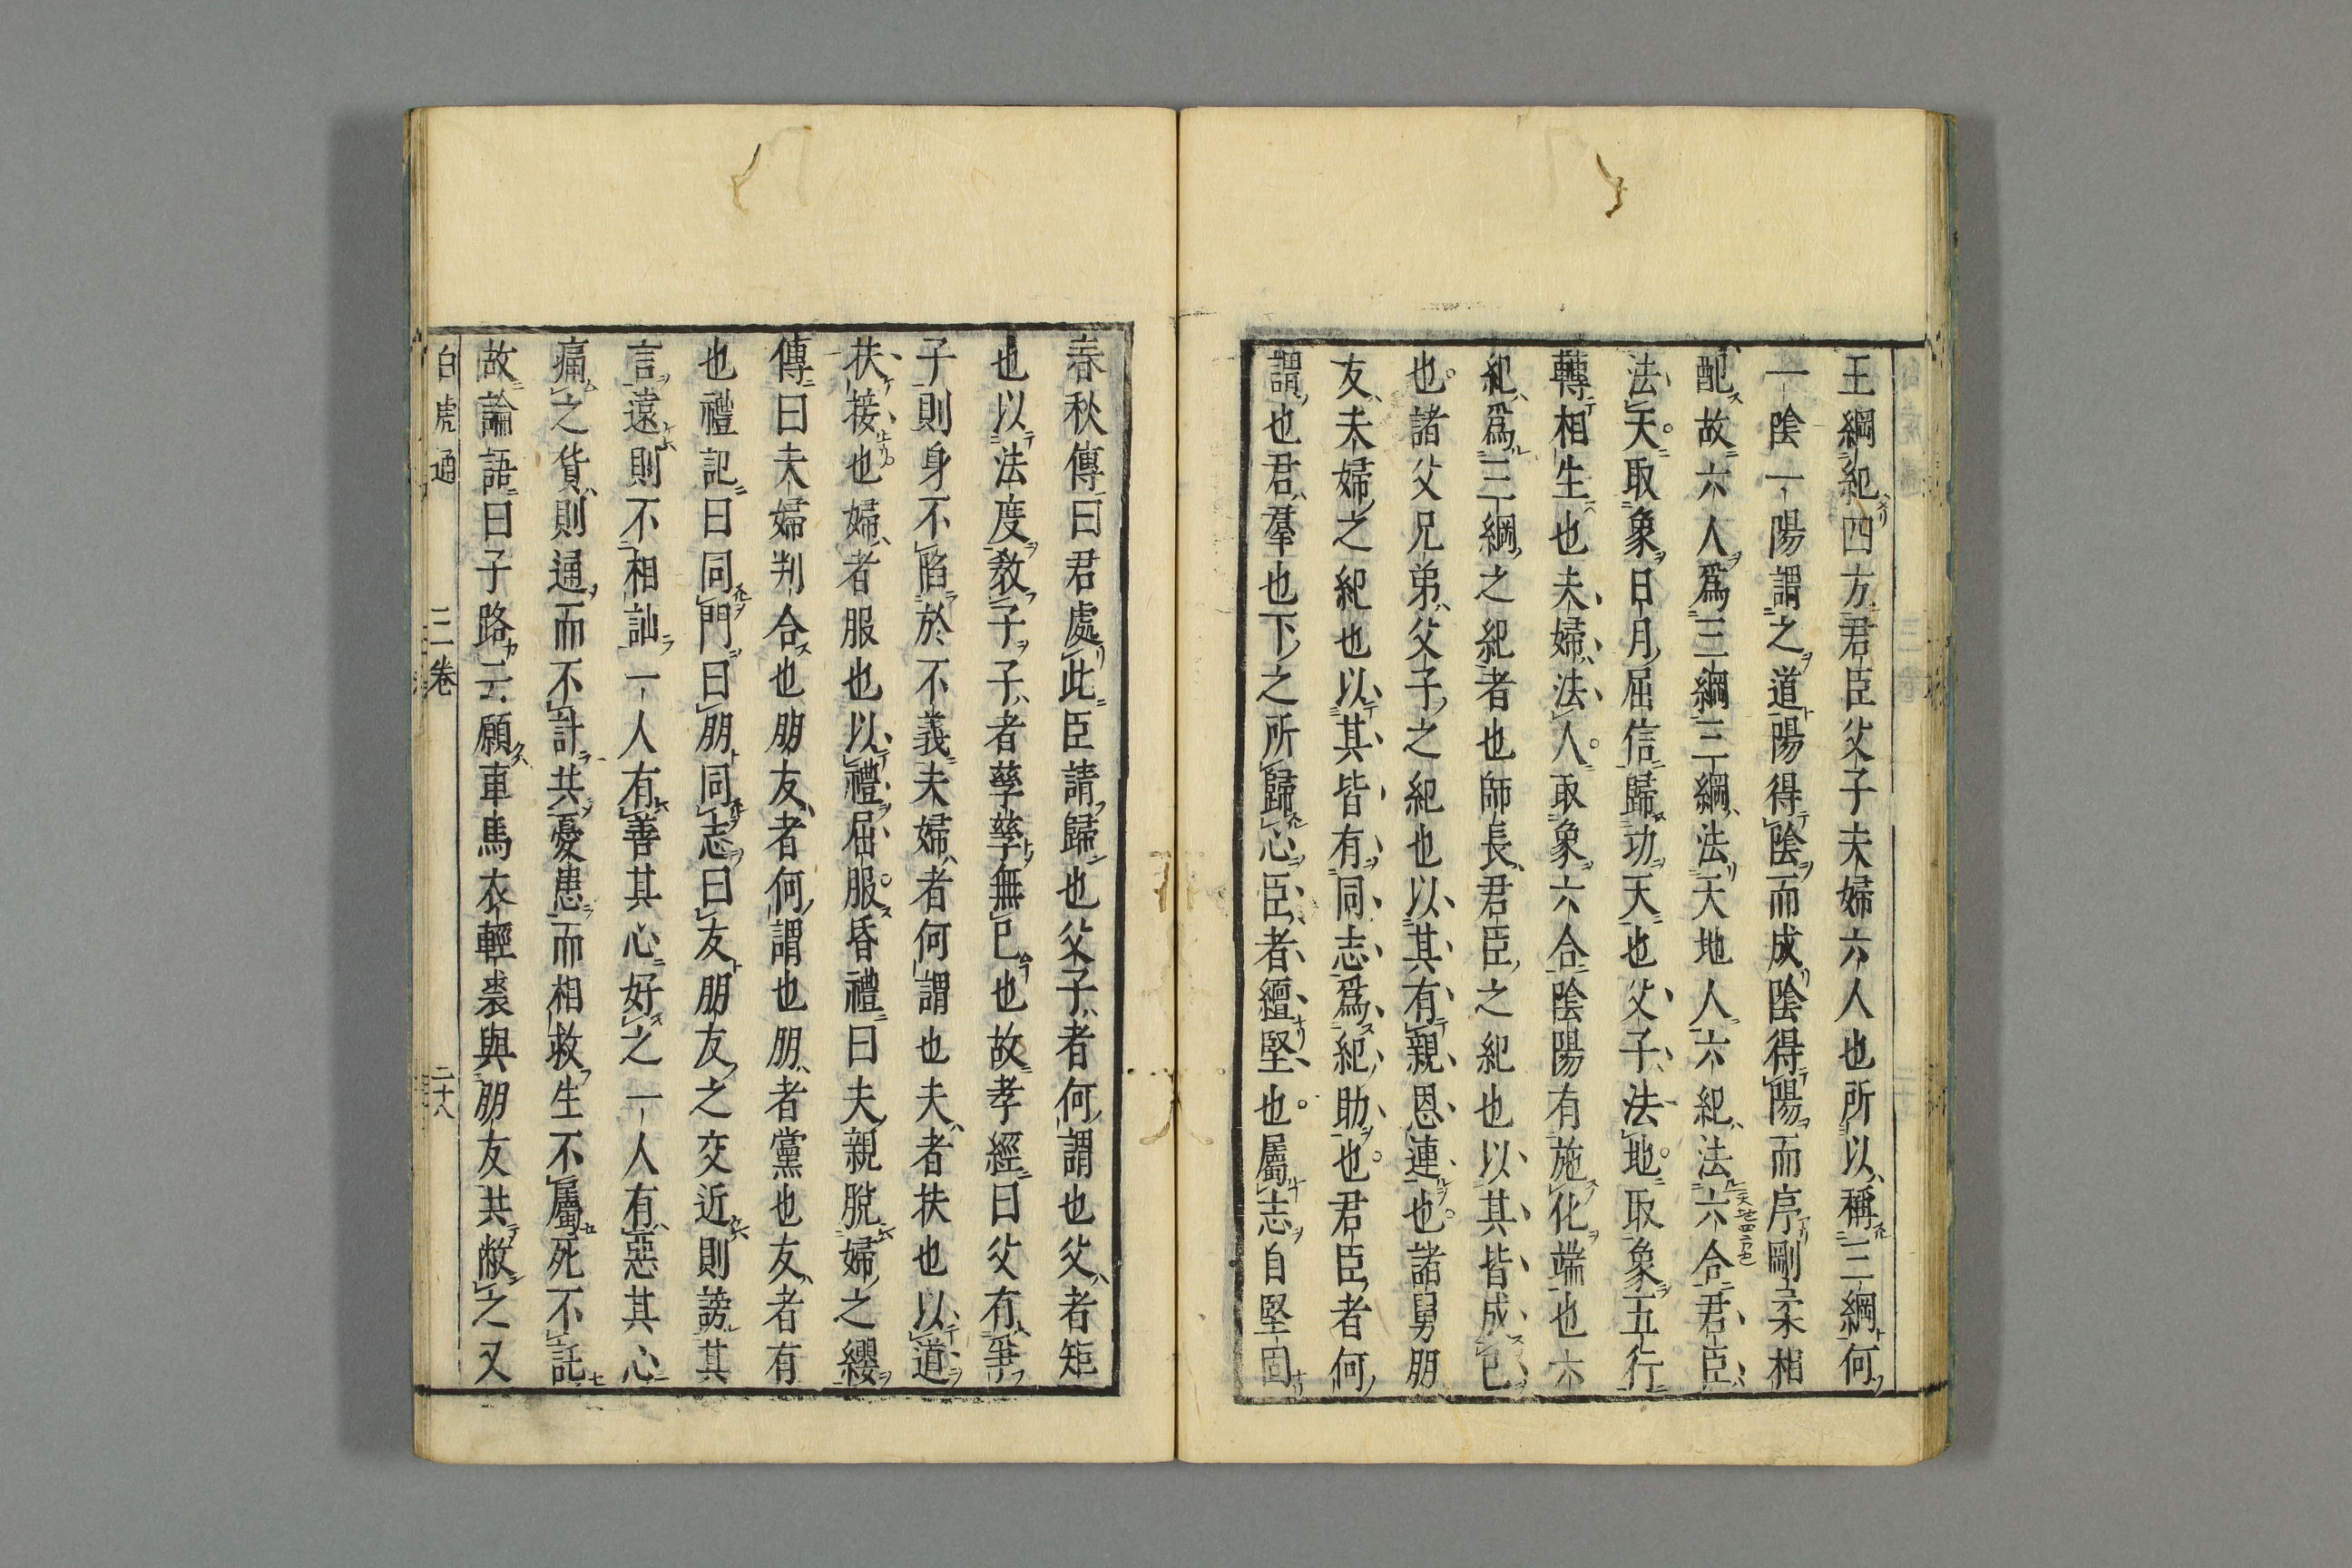 王綱紀四方君臣父子夫婦六人也所以稱三綱何
一陰一陽謂之道陽得陰而成陰得陽而序剛柔相
配故六人爲三綱三綱法天地人六紀法六合君臣
法天取象日月屈信歸功天也父子法地取象五行
轉相生也夫婦法人取象六合陰陽有施化端也六
紀爲三綱之紀者也師長君臣之紀也以其皆成己
也諸父兄弟父子之紀也以其有親恩連也諸舅朋
友夫婦之紀也以其皆有同志爲紀助也君臣者何
謂也君羣也下之所歸心臣者繵堅也屬志自堅固
春秋傳曰君處此臣請歸也父子者何謂也父者矩
也以法度敎子子者孳孳無已也故孝經曰父有爭
子則身不陷於不義夫婦者何謂也夫者扶也以道
扶接也婦者服也以禮屈服昏禮曰夫親脫婦之纓
傳曰夫婦判合也朋友者何謂也朋者黨也友者有
也禮記曰同門曰朋同志曰友朋友之交近則謗其
言遠則不相訕一人有善其心好之一人有惡其心
痛之貨則通而不計共憂患而相救生不屬死不託
故論語曰子路云願車馬衣輕裘與朋友共敝之又
白虎通 三卷 二十八